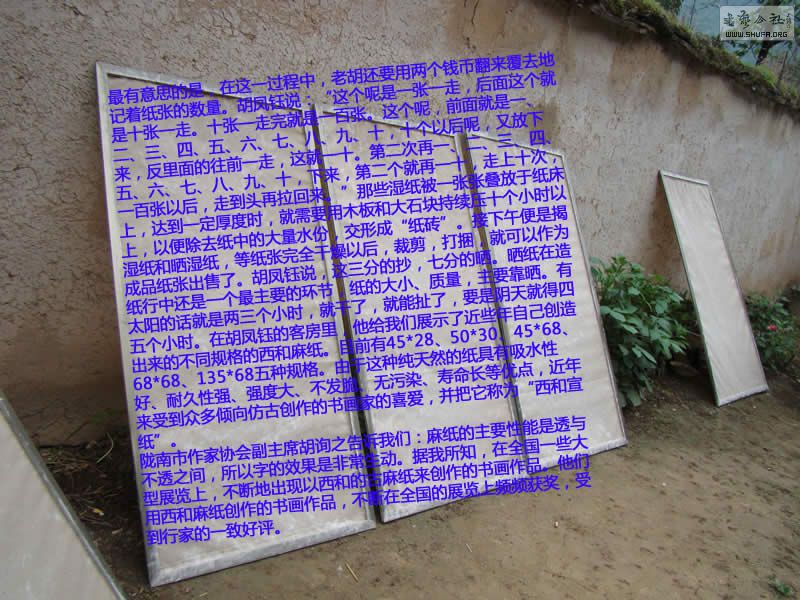 书法公社
WWW.SHUFA.ORG
最有意思的是，在这一过程中，老胡还要用两个钱币翻来覆去地
记着纸张的数量。胡凤钰说，“这个呢是一张一走，后面这个就
是十张一走。十张一走完就是一百张。这个呢，前面就是一、
二、三、四、五、六、七、八、九、十，十个以后呢，又放下
来，反里面的往前一走，这就一十。第二次再一、二、三、四、
五、六、七、八、九、十，下来，第二个就再一十，走上十次，
一百张以后，走到头再拉回来。”那些湿纸被一张张叠放于纸床
上，达到一定厚度时，就需要用木板和大石块持续压十个小时以
上，以便除去纸中的大量水份，交形成“纸砖”。接下午便是揭
湿纸和晒湿纸，等纸张完全干燥以后，裁剪，打捆，就可以作为
成品纸张出售了。胡凤钰说，这三分的抄，七分的晒。晒纸在造
纸行中还是一个最主要的环节，纸的大小、质量，主要靠晒。有
太阳的话就是两三个小时，就干了，就能扯了，要是阴天就得四
五个小时。在胡凤钰的客房里，他给我们展示了近些年自己创造
出来的不同规格的西和麻纸。目前有45*28、50*30、45*68、
68*68、135*68五种规格。由于这种纯天然的纸具有吸水性
好、耐久性强、强度大、不发脆、无污染、寿命长等优点，近年
来受到众多倾向仿古创作的书画家的喜爱，并把它称为“西和宣
纸”。
陇南市作家协会副主席胡询之告诉我们：麻纸的主要性能是透与
不透之间，所以字的效果是非常生动。据我所知，在全国一些大
型展览上，不断地出现以西和的古麻纸来创作的书画作品。他们
用西和麻纸创作的书画作品，不断在全国的展览上频频获奖，受
到行家的一致好评。